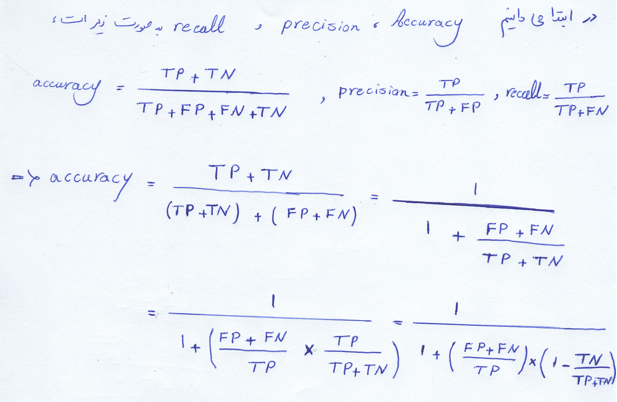 در ابتدا می دانیم Accuracy ، precision و recall به صورت زیر است:
accuracy = (TP + TN) / (TP + FP + FN + TN) , precision = TP / (TP + FP) , recall = TP / (TP + FN)
=> accuracy = (TP + TN) / ((TP + TN) + (FP + FN)) = 1 / (1 + (FP + FN) / (TP + TN))
= 1 / (1 + ((FP + FN) / TP × TP / (TP + TN))) = 1 / (1 + ((FP + FN) / TP) × (1 - TN / (TP + TN)))